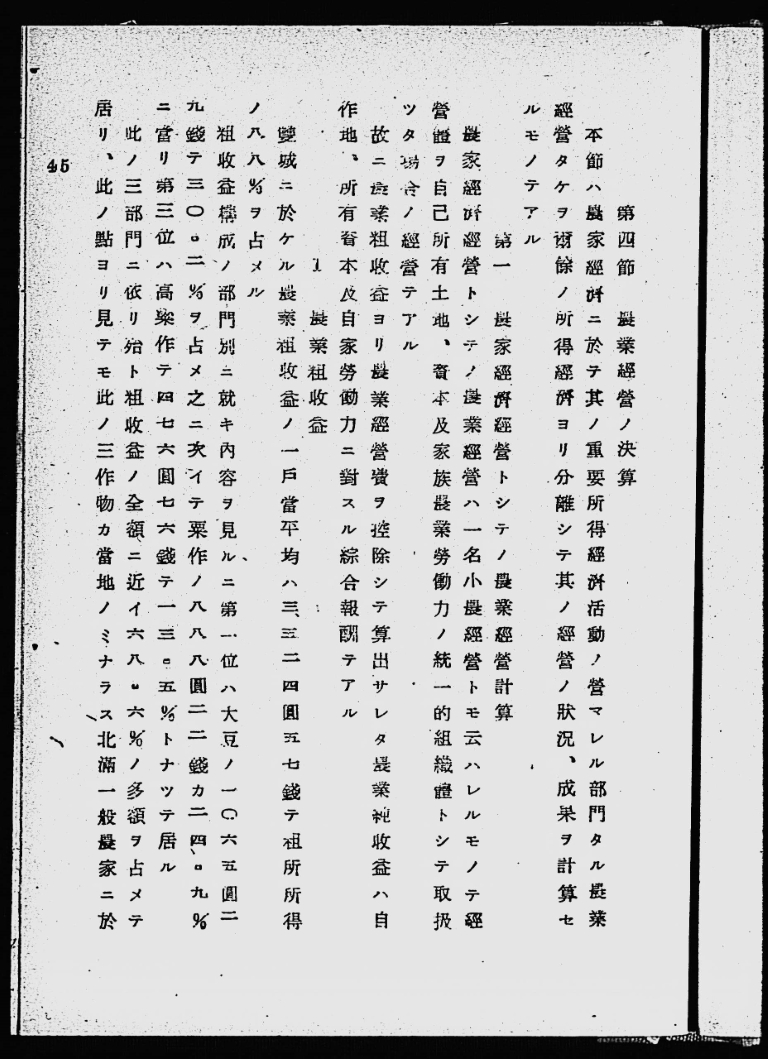 第四節　農業經營ノ決算
本節ハ農家經濟ニ於テ其ノ重要所得經濟活動ノ營マレル部門タル農業
經營タケヲ爾餘ノ所得經濟ヨリ分離シテ其ノ經營ノ狀況、成果ヲ計算セ
ルモノテアル
第一　農家經濟經營トシテノ農業經營計算
農家經濟經營トシテノ農業經營ハ一名小農經營トモ云ハレルモノテ經
營體ヲ自己所有土地、資本及家族農業勞働力ノ統一的組織體トシテ取扱
ツタ場合ノ經營テアル
故ニ農業粗收益ヨリ農業經營費ヲ控除シテ算出サレタ農業純收益ハ自
作地、所有資本及自家勞働力ニ對スル綜合報酬テアル
1　農業粗收益
雙城ニ於ケル農業粗收益ノ一戶當平均ハ三、三二四圓五七錢テ粗所所得
ノ八八%ヲ占メル
粗收益構成ノ部門別ニ就キ內容ヲ見ルニ第一位ハ大豆ノ一〇六五圓二
九錢テ三〇。二%ヲ占メ之ニ次イテ粟作ノ八八八圓二二錢カ二四。九%
ニ當リ第三位ハ高粱作テ四七六圓七六錢テ一三。五%トナツテ居ル
此ノ三部門ニ依リ殆ト粗收益ノ全額ニ近イ六八。六%ノ多額ヲ占メテ
居リ、此ノ點ヨリ見テモ此ノ三作物カ當地ノミナラス北滿一般農家ニ於
45